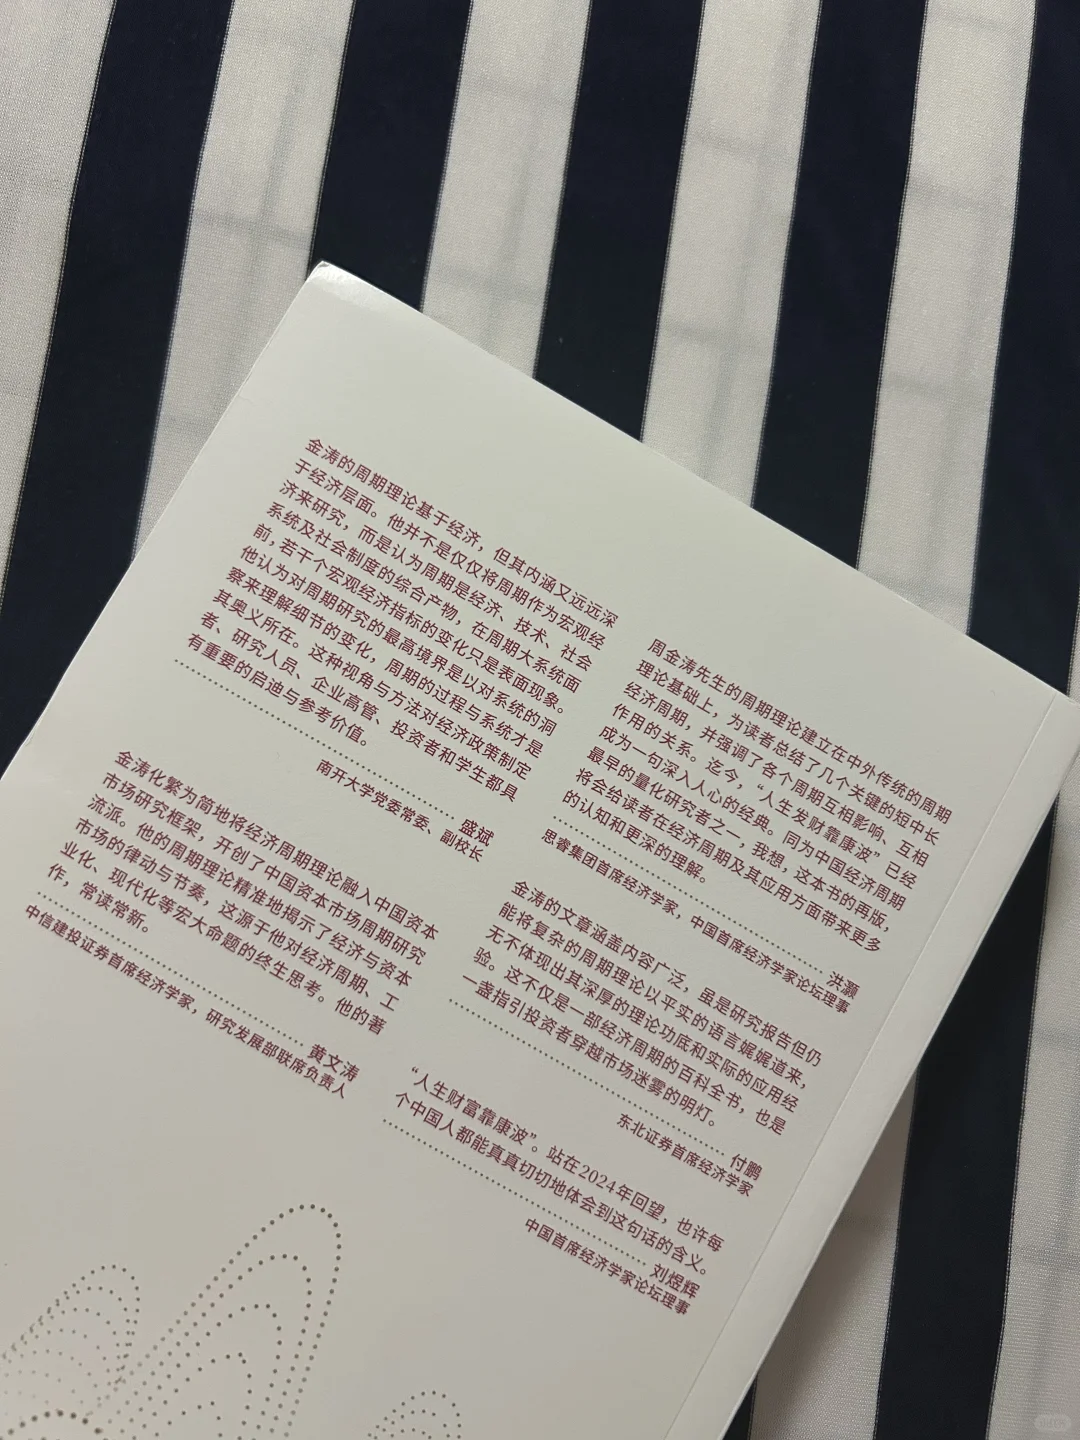 金涛的周期理论基于经济，但其内涵又远远深
于经济层面。他并不是仅仅将周期作为宏观经
济来研究，而是认为周期是经济、技术、社会
系统及社会制度的综合产物，在周期大系统面
前，若干个宏观经济指标的变化只是表面现象。
他认为对周期研究的最高境界是以对系统的洞
察来理解细节的变化，周期的过程与系统才是
其奥义所在。这种视角与方法对经济政策制定
者、研究人员、企业高管、投资者和学生都具
有重要的启迪与参考价值。
盛斌
南开大学党委常委、副校长
金涛化繁为简地将经济周期理论融入中国资本
市场研究框架，开创了中国资本市场周期研究
流派。他的周期理论精准地揭示了经济与资本
市场的律动与节奏，这源于他对经济周期、工
业化、现代化等宏大命题的终生思考。他的著
作，常读常新。
黄文涛
中信建投证券首席经济学家，研究发展部联席负责人
周金涛先生的周期理论建立在中外传统的周期
理论基础上，为读者总结了几个关键的短中长
经济周期，并强调了各个周期互相影响、互相
作用的关系。迄今，“人生发财靠康波”已经
成为一句深入人心的经典。同为中国经济周期
最早的量化研究者之一，我想，这本书的再版，
将会给读者在经济周期及其应用方面带来更多
的认知和更深的理解。
洪灏
思睿集团首席经济学家，中国首席经济学家论坛理事
金涛的文章涵盖内容广泛，虽是研究报告但仍
能将复杂的周期理论以平实的语言娓娓道来，
无不体现出其深厚的理论功底和实际的应用经
验。这不仅是一部经济周期的百科全书，也是
一盏指引投资者穿越市场迷雾的明灯。
付鹏
东北证券首席经济学家
“人生财富靠康波”。站在2024年回望，也许每
个中国人都能真真切切地体会到这句话的含义。
刘煜辉
中国首席经济学家论坛理事